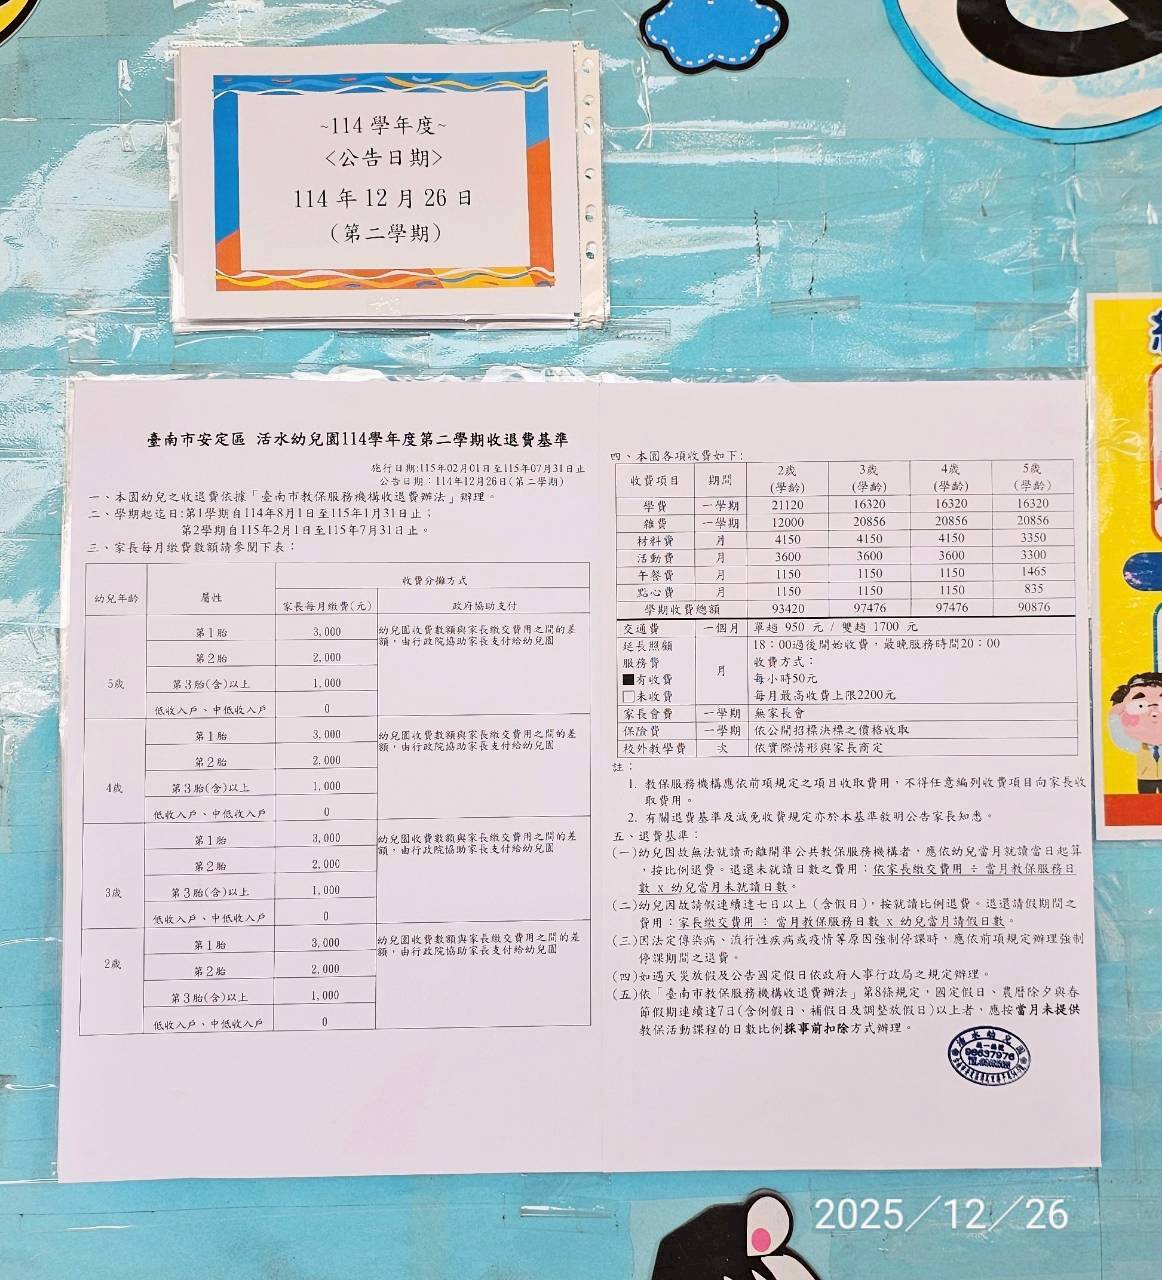 ~114 學年度~
<公告日期>
114 年 12 月 26 日
(第二學期)
臺南市安定區 活水幼兒園114學年度第二學期收退費基準
施行日期:115年02月01日至115年07月31日止
公告日期：114年12月26日(第二學期)
一、本園幼兒之收退費依據「臺南市教保服務機構收退費辦法」辦理。
二、學期起迄日:第1學期自114年8月1日至115年1月31日止；
第2學期自115年2月1日至115年7月31日止。
三、家長每月繳費數額請參閱下表：
幼兒年齡 屬性 收費分攤方式
家長每月繳費(元) 政府協助支付
5歲 第1胎 3,000 幼兒園收費數額與家長繳交費用之間的差
額，由行政院協助家長支付給幼兒園
第2胎 2,000
第3胎(含)以上 1,000
低收入戶、中低收入戶 0
4歲 第1胎 3,000 幼兒園收費數額與家長繳交費用之間的差
額，由行政院協助家長支付給幼兒園
第2胎 2,000
第3胎(含)以上 1,000
低收入戶、中低收入戶 0
3歲 第1胎 3,000 幼兒園收費數額與家長繳交費用之間的差
額，由行政院協助家長支付給幼兒園
第2胎 2,000
第3胎(含)以上 1,000
低收入戶、中低收入戶 0
2歲 第1胎 3,000 幼兒園收費數額與家長繳交費用之間的差
額，由行政院協助家長支付給幼兒園
第2胎 2,000
第3胎(含)以上 1,000
低收入戶、中低收入戶 0
四、本園各項收費如下:
收費項目 期間 2歲(學齡) 3歲(學齡) 4歲(學齡) 5歲(學齡)
學費 一學期 21120 16320 16320 16320
雜費 一學期 12000 20856 20856 20856
材料費 月 4150 4150 4150 3350
活動費 月 3600 3600 3600 3300
午餐費 月 1150 1150 1150 1465
點心費 月 1150 1150 1150 835
學期收費總額 93420 97476 97476 90876
交通費 一個月 單趟 950 元 / 雙趟 1700 元
延長照顧 18：00過後開始收費，最晚服務時間20：00
服務費 月 收費方式：
■有收費 每小時50元
□未收費 每月最高收費上限2200元
家長會費 一學期 無家長會
保險費 一學期 依公開招標決標之價格收取
校外教學費 次 依實際情形與家長商定
註：
1. 教保服務機構應依前項規定之項目收取費用，不得任意編列收費項目向家長收
取費用。
2. 有關退費基準及減免收費規定亦於本基準敘明公告家長知悉。
五、退費基準：
(一)幼兒因故無法就讀而離開準公共教保服務機構者，應依幼兒當月就讀當日起算
，按比例退費。退還未就讀日數之費用：依家長繳交費用 ÷ 當月教保服務日
數 x 幼兒當月未就讀日數。
(二)幼兒因故請假連續達七日以上（含假日），按就讀比例退費。退還請假期間之
費用：家長繳交費用 ÷ 當月教保服務日數 x 幼兒當月請假日數。
(三)因法定傳染病、流行性疾病或疫情等原因強制停課時，應依前項規定辦理強制
停課期間之退費。
(四)如遇天災放假及公告國定假日依政府人事行政局之規定辦理。
(五)依「臺南市教保服務機構收退費辦法」第8條規定，國定假日、農曆除夕與春
節假期連續達7日(含例假日、補假日及調整放假日)以上者，應按當月未提供
教保活動課程的日數比例採事前扣除方式辦理。
活水幼兒園
統一編號
98637976
2025/12/26